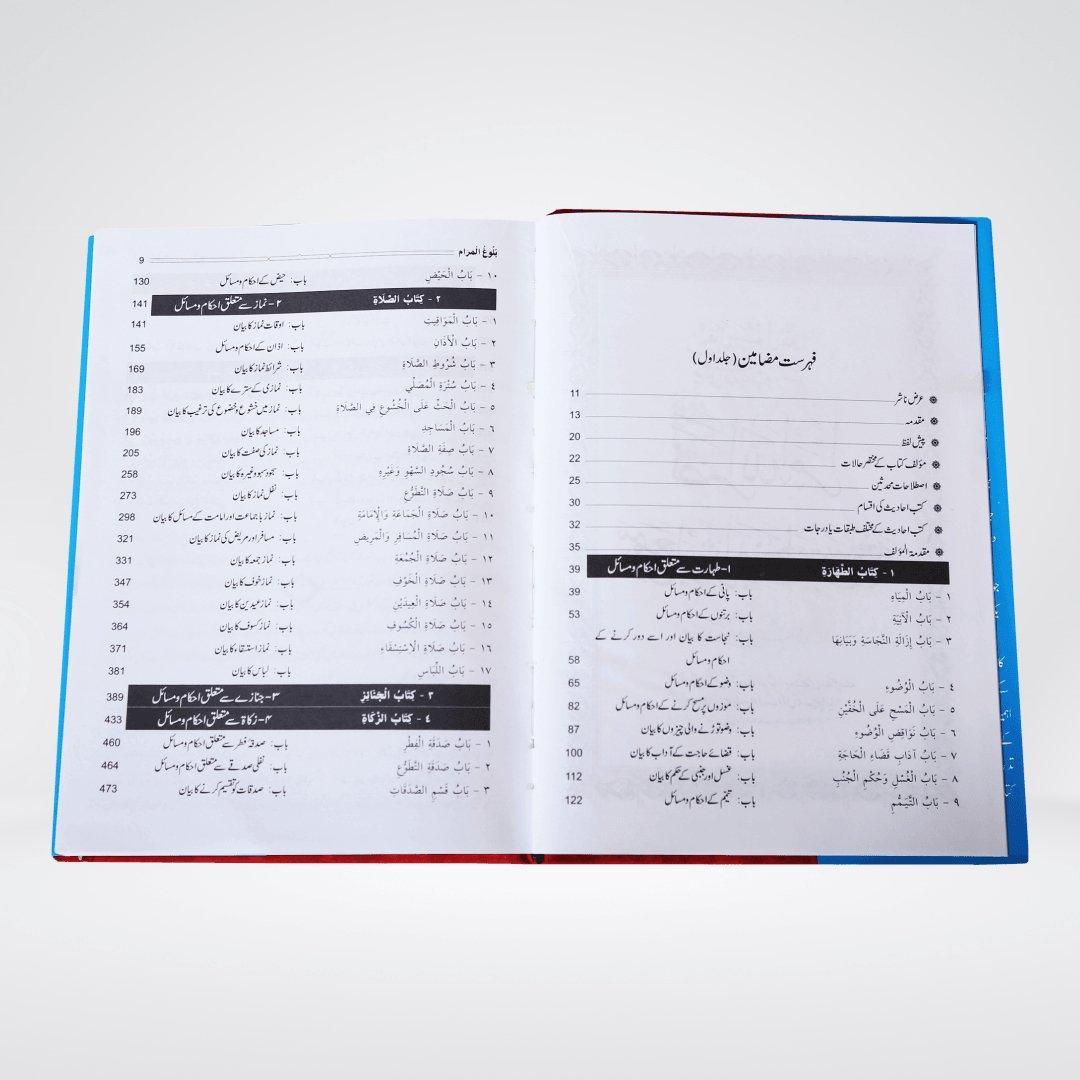 فہرست مضامین (جلد اول)
عرض ناشر 11
مقدمہ 13
پیش لفظ 20
مؤلف کتاب کے مختصر حالات 22
اصطلاحات محدثین 25
کتب احادیث کی اقسام 30
کتب احادیث کے مختلف طبقات یا درجات 32
مقدمۃ المؤلف 35
١ - كِتَابُ الطَّهَارَةِ ۱- طہارت سے متعلق احکام و مسائل 39
١ - بَابُ الْمِيَاهِ باب: پانی کے احکام و مسائل 39
٢ - بَابُ الْآنِيَةِ باب: برتنوں کے احکام و مسائل 53
٣ - بَابُ إِزَالَةِ النَّجَاسَةِ وَبَيَانِهَا باب: نجاست کا بیان اور اسے دور کرنے کے
احکام و مسائل 58
٤ - بَابُ الْوُضُوءِ باب: وضو کے احکام و مسائل 65
٥ - بَابُ الْمَسْحِ عَلَى الْخُفَّيْنِ باب: موزوں پر مسح کرنے کے احکام و مسائل 82
٦ - بَابُ نَوَاقِضِ الْوُضُوءِ باب: وضو توڑنے والی چیزوں کا بیان 87
٧ - بَابُ آدَابِ قَضَاءِ الْحَاجَةِ باب: قضائے حاجت کے آداب کا بیان 100
٨ - بَابُ الْغُسْلِ وَحُكْمِ الْجُنُبِ باب: غسل اور جنبی کے حکم کا بیان 112
٩ - بَابُ التَّيَمُّمِ باب: تیمم کے احکام و مسائل 122
بُلُوغُ الْمَرَام 9
١٠ - بَابُ الْحَيْضِ باب: حیض کے احکام و مسائل 130
٢ - كِتَابُ الصَّلَاةِ ۲- نماز سے متعلق احکام و مسائل 141
١ - بَابُ الْمَوَاقِيتِ باب: اوقات نماز کا بیان 141
٢ - بَابُ الْأَذَانِ باب: اذان کے احکام و مسائل 155
٣ - بَابُ شُرُوطِ الصَّلَاةِ باب: شرائط نماز کا بیان 169
٤ - بَابُ سُتْرَةِ الْمُصَلِّي باب: نمازی کے سترے کا بیان 183
٥ - بَابُ الْحَثِّ عَلَى الْخُشُوعِ فِي الصَّلَاةِ باب: نماز میں خشوع و خضوع کی ترغیب کا بیان 189
٦ - بَابُ الْمَسَاجِدِ باب: مساجد کا بیان 196
٧ - بَابُ صِفَةِ الصَّلَاةِ باب: نماز کی صفت کا بیان 205
٨ - بَابُ سُجُودِ السَّهْوِ وَغَيْرِهِ باب: سجود سہو وغیرہ کا بیان 258
٩ - بَابُ صَلَاةِ التَّطَوُّعِ باب: نفل نماز کا بیان 273
١٠ - بَابُ صَلَاةِ الْجَمَاعَةِ وَالْإِمَامَةِ باب: نماز باجماعت اور امامت کے مسائل کا بیان 298
١١ - بَابُ صَلَاةِ الْمُسَافِرِ وَالْمَرِيضِ باب: مسافر اور مریض کی نماز کا بیان 321
١٢ - بَابُ صَلَاةِ الْجُمُعَةِ باب: نماز جمعہ کا بیان 331
١٣ - بَابُ صَلَاةِ الْخَوْفِ باب: نماز خوف کا بیان 347
١٤ - بَابُ صَلَاةِ الْعِيدَيْنِ باب: نماز عیدین کا بیان 354
١٥ - بَابُ صَلَاةِ الْكُسُوفِ باب: نماز کسوف کا بیان 364
١٦ - بَابُ صَلَاةِ الْاِسْتِسْقَاءِ باب: نماز استسقاء کا بیان 371
١٧ - بَابُ اللِّبَاسِ باب: لباس کا بیان 381
٣ - كِتَابُ الْجَنَائِزِ ۳- جنازے سے متعلق احکام و مسائل 389
٤ - كِتَابُ الزَّكَاةِ ۴- زکاۃ سے متعلق احکام و مسائل 433
١ - بَابُ صَدَقَةِ الْفِطْرِ باب: صدقہ فطر سے متعلق احکام و مسائل 460
٢ - بَابُ صَدَقَةِ التَّطَوُّعِ باب: نفلی صدقے سے متعلق احکام و مسائل 464
٣ - بَابُ قَسْمِ الصَّدَقَاتِ باب: صدقات کو تقسیم کرنے کا بیان 473